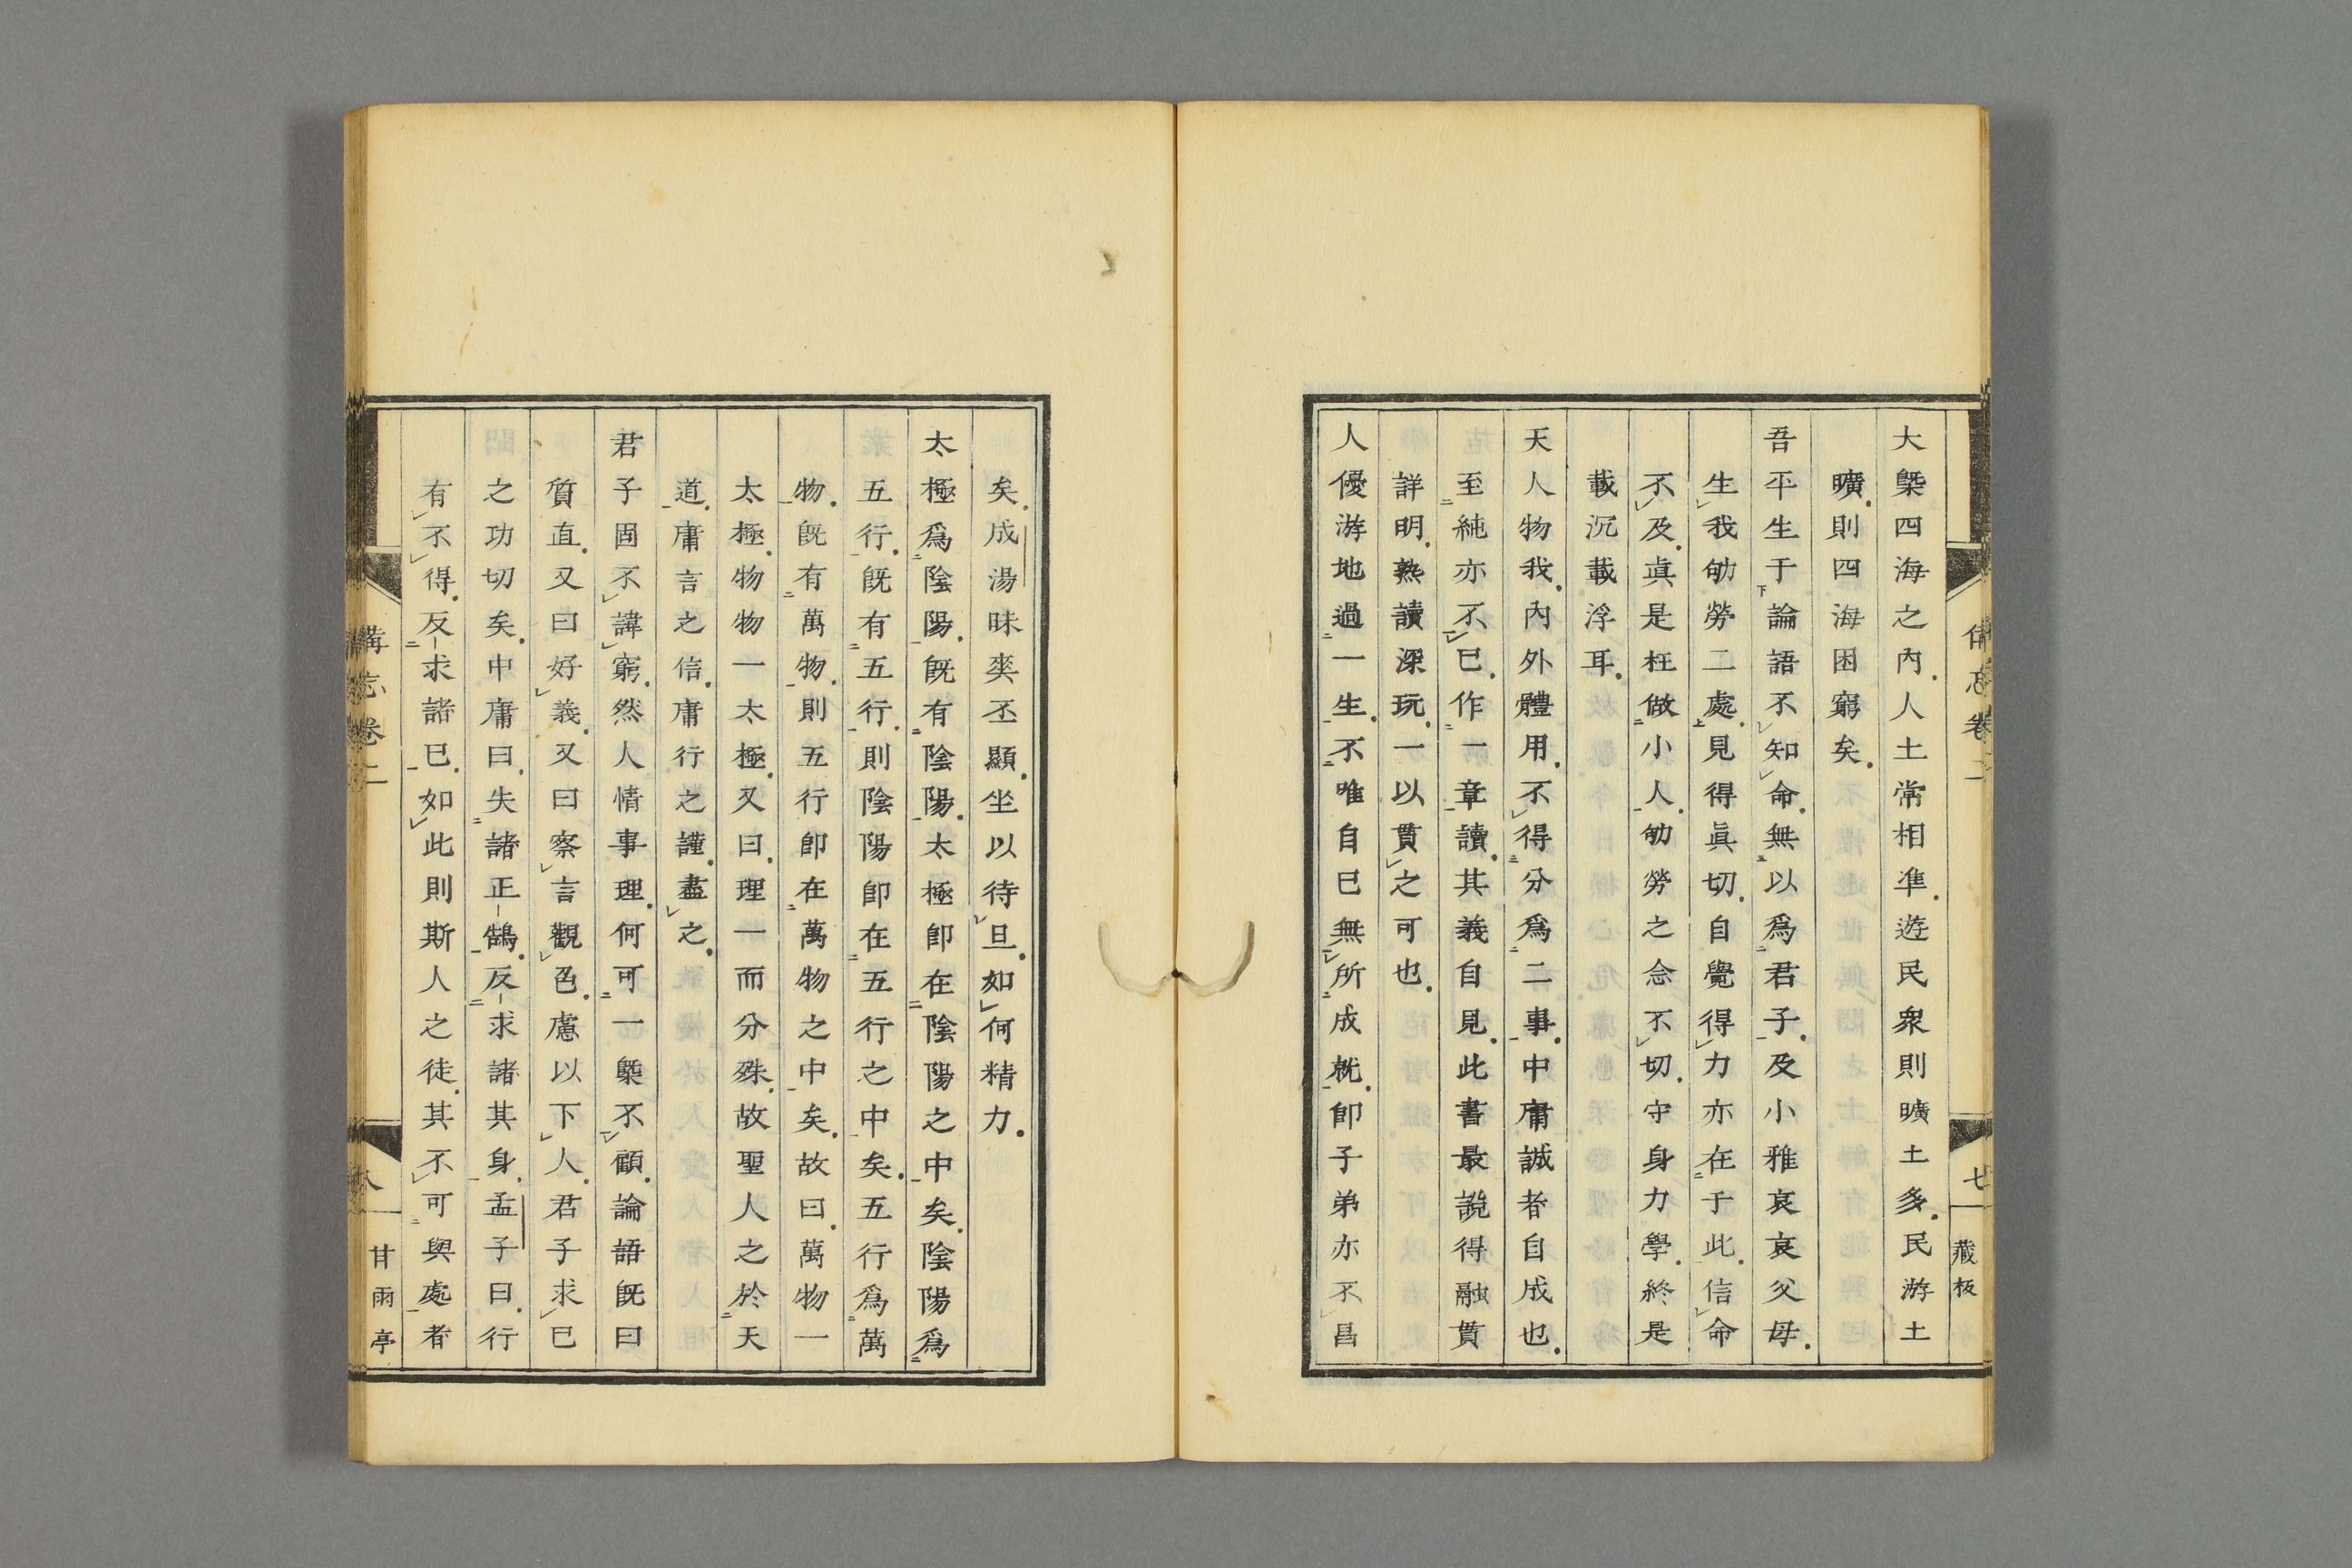 大槩四海之内人土常相準遊民衆則曠土多民游土
曠則四海困窮矣
吾平生于論語不知命無以爲君子及小雅哀哀父母
生我劬勞二處見得眞切自覺得力亦在于此信命
不及眞是枉做小人劬勞之念不切守身力學終是
載沉載浮耳
天人物我內外體用不得分爲二事中庸誠者自成也
至純亦不已作一章讀其義自見此書最說得融貫
詳明熟讀深玩一以貫之可也
人優游地過一生不唯自已無所成就卽子弟亦不昌
備忘卷二
七
藏板
矣成湯昧爽丕顯坐以待旦如何精力
太極爲陰陽旣有陰陽太極卽在陰陽之中矣陰陽爲
五行旣有五行則陰陽卽在五行之中矣五行爲萬
物旣有萬物則五行卽在萬物之中矣故曰萬物一
太極物物一太極又曰理一而分殊故聖人之於天
道庸言之信庸行之謹盡之
君子固不諱窮然人情事理何可一槩不顧論語旣曰
質直又曰好義又曰察言觀色慮以下人君子求已
之功切矣中庸曰失諸正鵠反求諸其身孟子曰行
有不得反求諸已如此則斯人之徒其不可與處者
備忘卷二
八
甘雨亭